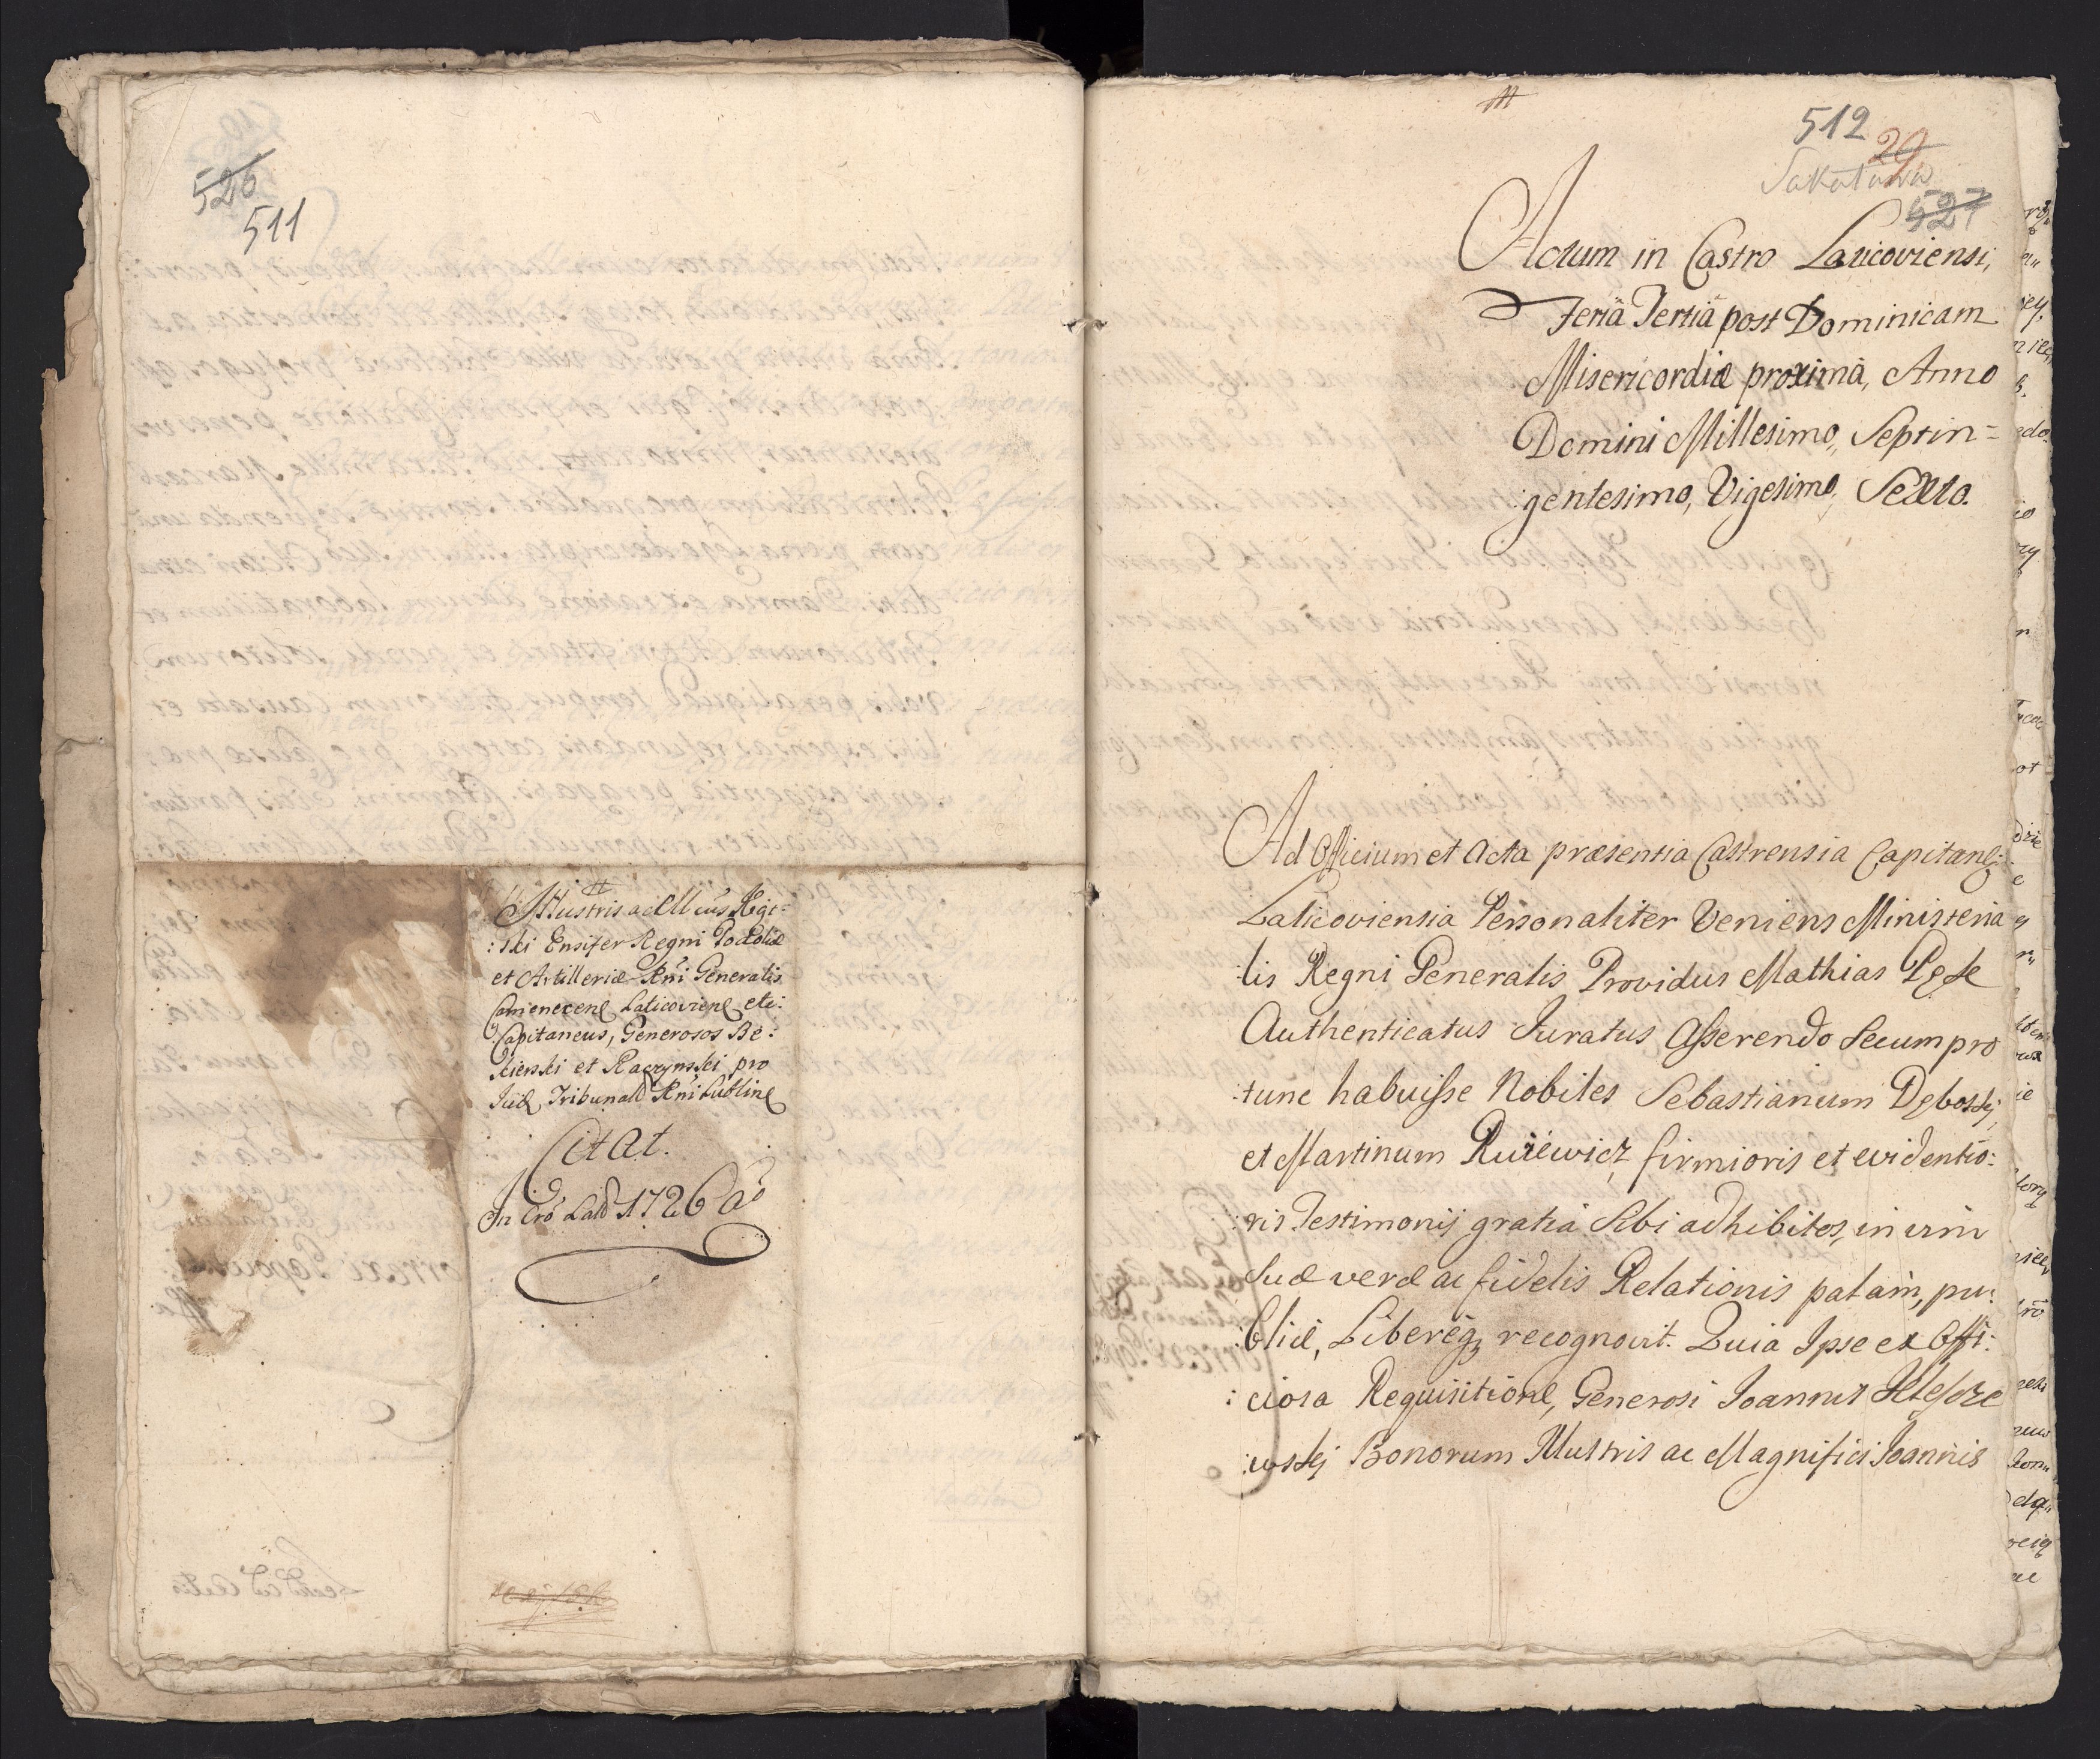 526
511
Illustris ac Mcus Rze:
:ski Ensifer Regni Podoliæ
et Artilleriæ Rni Generalis
Camenecens Laticoviens etc:
Capitaneus, Generosos Be:
kierski et Raczynski pro
Judo Tribunali Rni Lublins
Citat.
In Cro Latd 1726 ao
512
29
527
Actum in Castro Laticoviensi,
Feriâ Tertiâ post Dominicam
Misericordiæ proximâ, Anno
Domini Millesimo, Septin=
:gentesimo, Vigesimo, Sexto.
Ad Officium et Acta præsentia Castrensia Capitanea:
Laticoviensia Personaliter Veniens Ministeria
:lis Regni Generalis Providus Mathias
Authenticatus Juratus Asserendo Secum pro
:tunc habuisse Nobiles Sebastianum Dęboski,
et Martinum Rużewicz, firmioris et evidentio:
:ris Testimonij gratiâ Sibi adhibitos, in vim
Suæ veræ ac fidelis Relationis palam, pu:
:blicè, Libereq; recognovit. Quia Ipse ex Offi:
:ciosa Requisitione, Generosi Joannis
:wskj Bonorum Illustris ac Magnifici Joannis